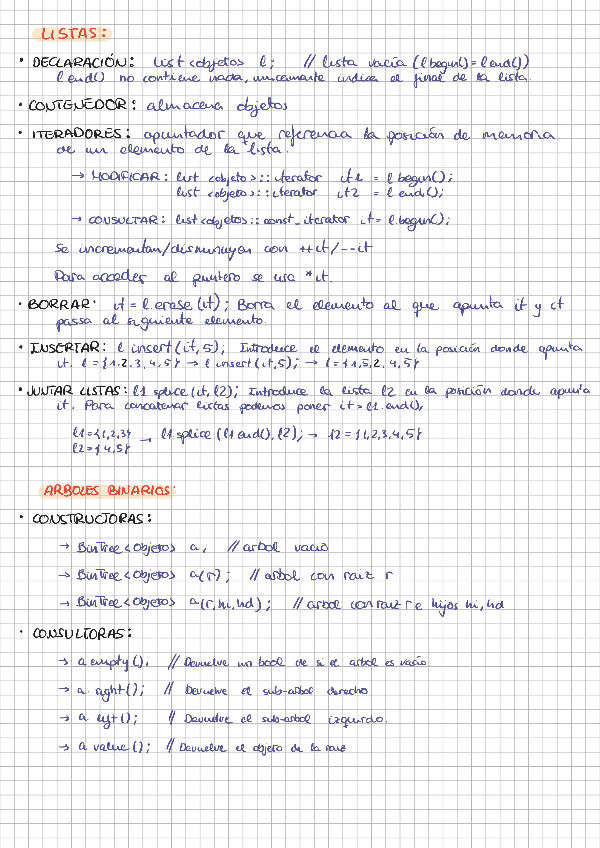 LISTAS:
• DECLARACIÓN: list<objeto> l; // lista vacía (l.begin() = l.end())
l.end() no contiene nada, unicamente indica el final de la lista.
• CONTENEDOR: almacena objetos
• ITERADORES: apuntador que referencia la posición de memoria
de un elemento de la lista.
→ MODIFICAR: list <objeto>::iterator it1 = l.begin();
list <objeto>::iterator it2 = l.end();
→ CONSULTAR: list<objeto>::const_iterator it = l.begin();
Se incrementan/disminuyen con ++it/--it
Para acceder al puntero se usa *it.
• BORRAR: it = l.erase(it); Borra el elemento al que apunta it y it
pasa al siguiente elemento.
• INSERTAR: l.insert(it,5); Introduce el elemento en la posición donde apunta
it. l = {1,2,3,4,5} → l.insert(it,5); → l = {1,5,2,4,5}
• JUNTAR LISTAS: l1.splice(it,l2); Introduce la lista l2 en la posición donde apunta
it. Para concatenar listas podemos poner it = l1.end();
l1={1,2,3} → l1.splice(l1.end(), l2); → l2 = {1,2,3,4,5}
l2={4,5}
ARBOLES BINARIOS:
• CONSTRUCTORAS:
→ BinTree<Objeto> a; // arbol vacio
→ BinTree<Objeto> a(r); // arbol con raiz r
→ BinTree<Objeto> a(r,hi,hd); // arbol con raiz r e hijos hi, hd
• CONSULTORAS:
→ a.empty(); // Devuelve un bool de si el arbol es vacio
→ a.right(); // Devuelve el sub-arbol derecho
→ a.left(); // Devuelve el sub-arbol izquierdo.
→ a.value(); // Devuelve el objeto de la raiz